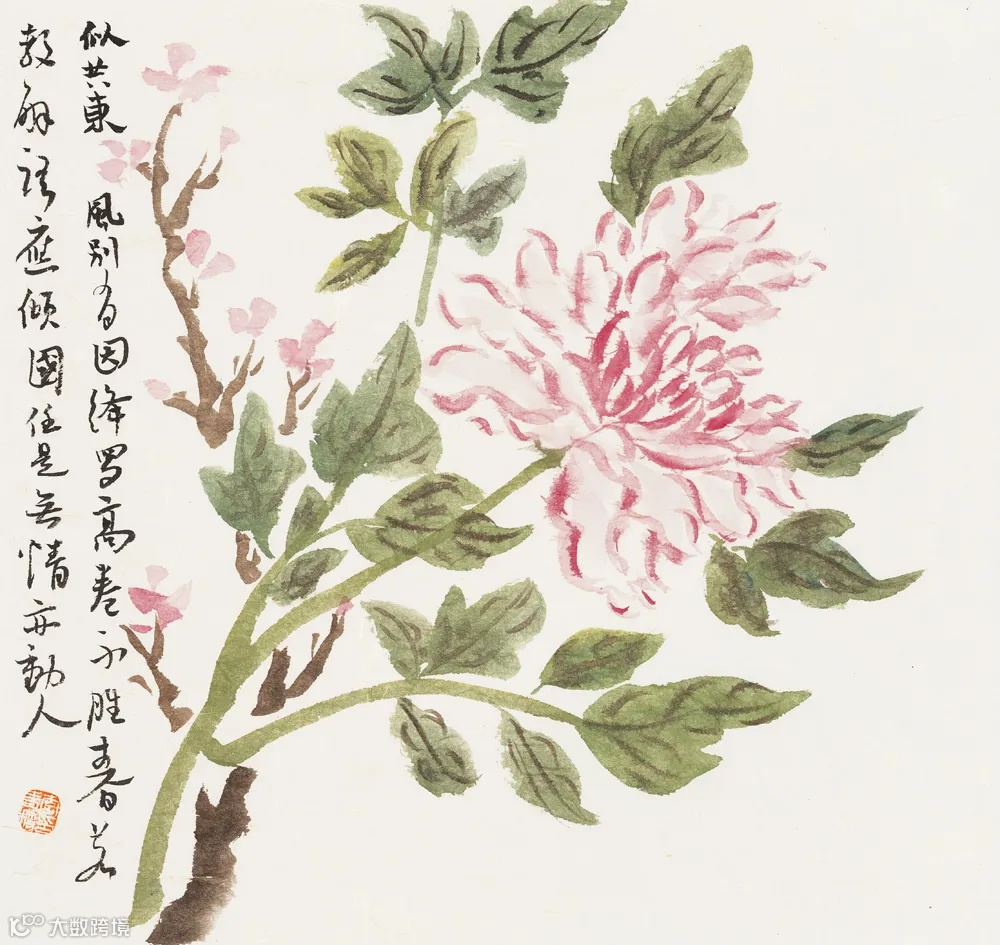 似共東風別有因絳羅高卷不勝春若
教解語應傾國任是無情亦動人
大数跨境